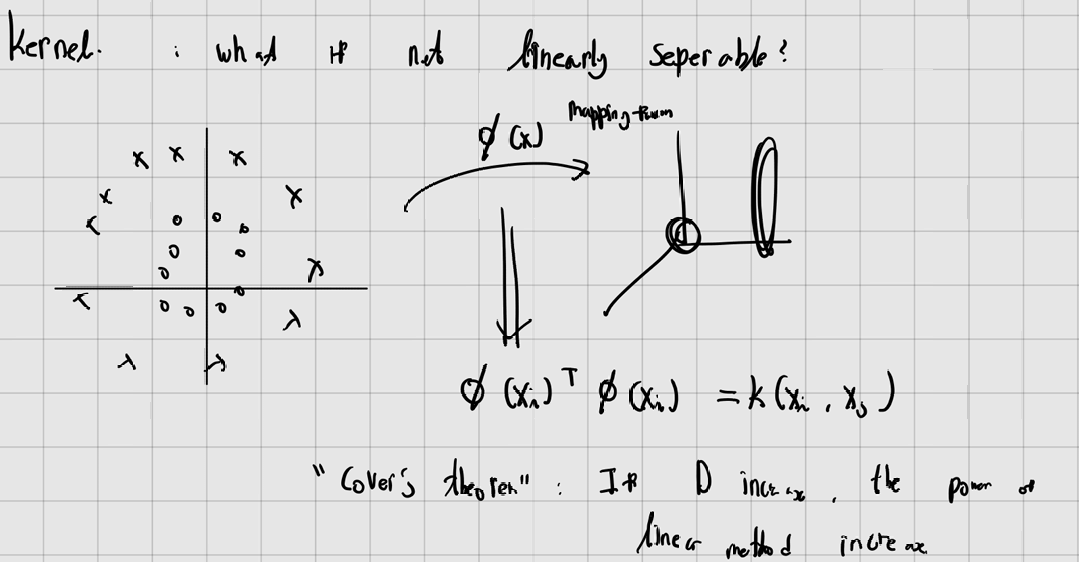 Kernel. : what if not linearly seperable?
ϕ(x) mapping
ϕ(xᵢ)ᵀ ϕ(xⱼ) = k(xᵢ, xⱼ)
"Cover's theorem" : If D increase, the power of
linear method increase